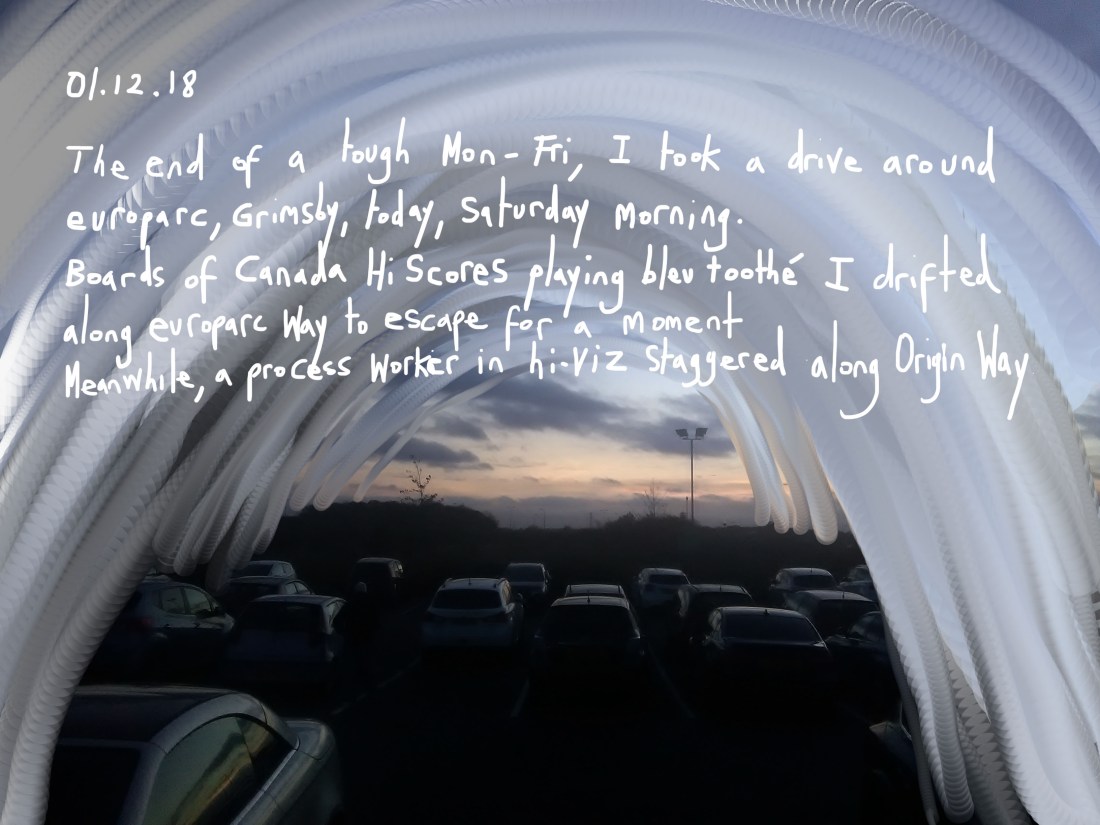 01.12.18
The end of a tough Mon-Fri, I took a drive around
europarc, Grimsby, today, Saturday morning.
Boards of Canada Hi Scores playing bleu toothé I drifted
along europarc Way to escape for a moment
Meanwhile, a process worker in hi-viz staggered along Origin Way